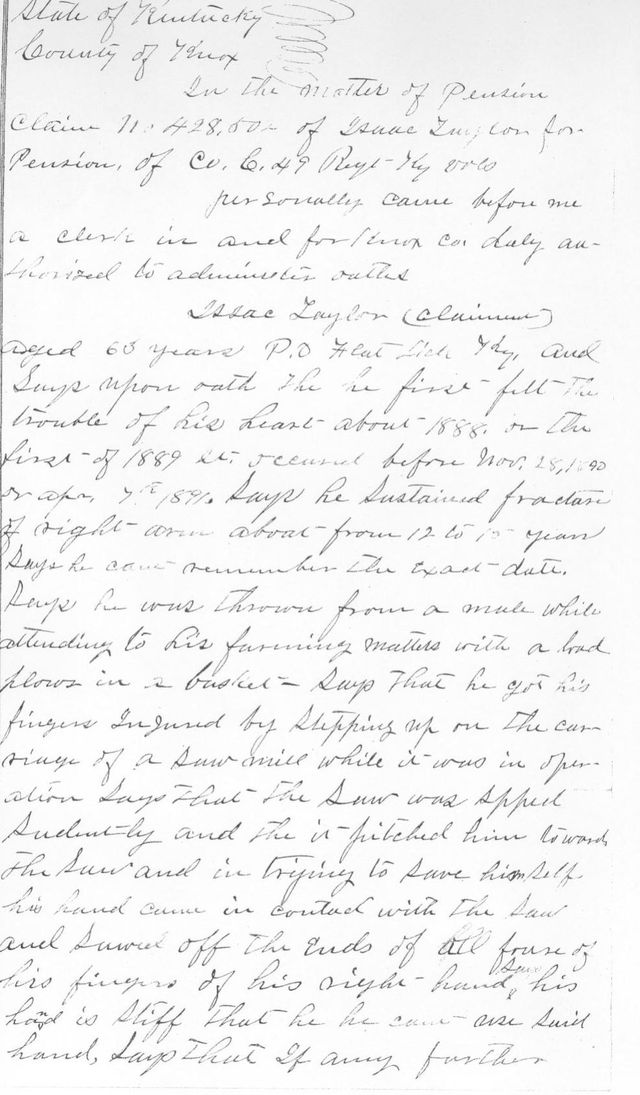 State of Kentucky
County of Knox
In the matter of Pension
Claim No 428,502 of Isaac Taylor for
Pension, of Co. C. 49 Regt Ky vols
personally came before me
a clerk in and for Knox co. duly au-
thorized to administer oaths
Issac Taylor (Claimant)
aged 63 years P.O Flat Lick Ky, and
Says upon oath the he first felt the
trouble of his heart about 1888. or the
first of 1889 it occured before Nov. 28, 1890
or apr, 7th 1891. Says he Sustained fracture
of right arm about from 12 to 15 years
Says he cant remember the Exact date.
Says he was thrown from a mule while
attending to his farming matters with a load
plows in a basket - Says that he got his
fingers Injured by Stepping up on the car-
riage of a Saw mill while it was in oper-
ation Says that the Saw was Spped
Sudently and the it pitched him towards
the Saw and in trying to Save himself
his hand came in contact with the Saw
and Sawed off the Ends of all foure of
his fingers of his right hand, Says his
hand is Stiff that he he cant use Said
hand, Says that If any further